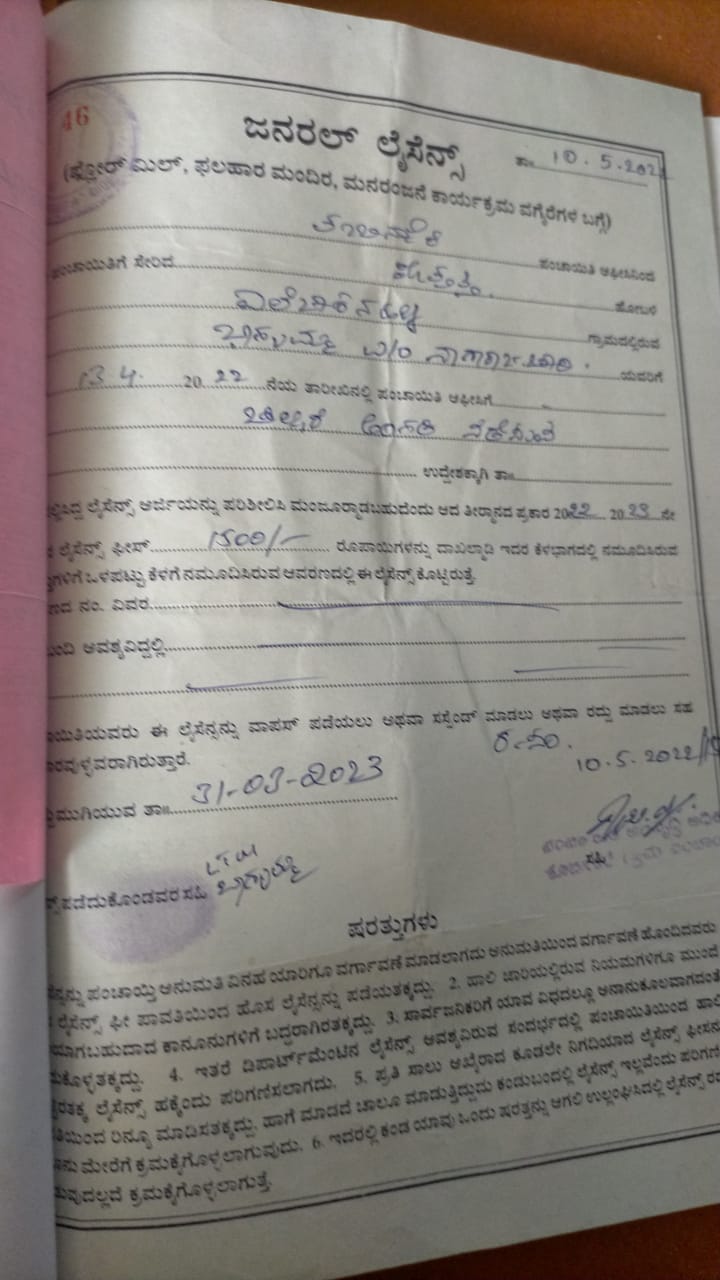 46
ಜನರಲ್ ಲೈಸೆನ್ಸ್
ತಾ॥ 10.5.202
(ಫ್ಲೋರ್ ಮಿಲ್, ಫಲಹಾರ ಮಂದಿರ, ಮನರಂಜನೆ ಕಾರ್ಯಕ್ರಮ ವಗೈರೆಗಳ ಬಗ್ಗೆ)
ಪಂಚಾಯಿತಿ ಆಫೀಸಿನಿಂದ
ಪಂಚಾಯಿತಿಗೆ ಸೇರಿದ
ಹೋಬಳಿ
ಗ್ರಾಮದಲ್ಲಿರುವ
ಭಾಗ್ಯಮ್ಮ W/o ನಾಗರಾಜ ಚಾರಿ. ಯವರಿಗೆ
13.4. 2022 ನೆಯ ತಾರೀಖಿನಲ್ಲಿ ಪಂಚಾಯಿತಿ ಆಫೀಸಿಗೆ
ಚಿಲ್ಲರೆ ಅಂಗಡಿ ನಡೆಸಲು
ಉದ್ದೇಶಕ್ಕಾಗಿ ತಾ॥
ಲ್ಲಿಸಿದ್ದ ಲೈಸೆನ್ಸ್ ಅರ್ಜಿಯನ್ನು ಪರಿಶೀಲಿಸಿ ಮಂಜೂರ್‍ಮಾಡಬಹುದೆಂದು ಆದ ತೀರ್ಮಾನದ ಪ್ರಕಾರ 2022 2023 ನೇ
ಲೈಸೆನ್ಸ್ ಫೀಸ್ 1500/- ರೂಪಾಯಿಗಳನ್ನು ದಾಖಲ್ಮಾಡಿ ಇದರ ಕೆಳಭಾಗದಲ್ಲಿ ನಮೂದಿಸಿರುವ
ತ್ತುಗಳಿಗೆ ಒಳಪಟ್ಟು ಕೆಳಗೆ ನಮೂದಿಸಿರುವ ಆವರಣದಲ್ಲಿ ಈ ಲೈಸೆನ್ಸ್ ಕೊಟ್ಟಿರುತ್ತೆ.
ಣದ ನಂ. ವಿವರ
ಬಂದಿ ಅವಶ್ಯವಿದ್ದಲ್ಲಿ
ಾಯಿತಿಯವರು ಈ ಲೈಸೆನ್ಸನ್ನು ವಾಪಸ್ ಪಡೆಯಲು ಅಥವಾ ಸಸ್ಪೆಂಡ್ ಮಾಡಲು ಅಥವಾ ರದ್ದು ಮಾಡಲು ಸಹ
ಾರವುಳ್ಳವರಾಗಿರುತ್ತಾರೆ.
10.5.2022
ಮುಗಿಯುವ ತಾ॥ 31-03-2023
ಸಹಿ
ಪಡೆದುಕೊಂಡವರ ಸಹಿ ಭಾಗ್ಯಮ್ಮ
ಷರತ್ತುಗಳು
ಸ್ಸನ್ನು ಪಂಚಾಯ್ತಿ ಅನುಮತಿ ವಿನಹ ಯಾರಿಗೂ ವರ್ಗಾವಣೆ ಮಾಡಲಾಗದು ಅನುಮತಿಯಿಂದ ವರ್ಗಾವಣೆ ಹೊಂದಿದವರು
ಲೈಸೆನ್ಸ್ ಫೀ ಪಾವತಿಯಿಂದ ಹೊಸ ಲೈಸೆನ್ಸನ್ನು ಪಡೆಯತಕ್ಕದ್ದು. 2. ಹಾಲಿ ಜಾರಿಯಲ್ಲಿರುವ ನಿಯಮಗಳಿಗೂ ಮುಂದೆ
ಯಾಗಬಹುದಾದ ಕಾನೂನುಗಳಿಗೆ ಬದ್ಧರಾಗಿರತಕ್ಕದ್ದು. 3. ಸಾರ್ವಜನಿಕರಿಗೆ ಯಾವ ವಿಧದಲ್ಲೂ ಅನಾನುಕೂಲವಾಗದಂತೆ
ಕೊಳ್ಳತಕ್ಕದ್ದು. 4. ಇತರೆ ಡಿಪಾರ್ಟ್‌ಮೆಂಟಿನ ಲೈಸೆನ್ಸ್ ಅವಶ್ಯವಿರುವ ಸಂದರ್ಭದಲ್ಲಿ ಪಂಚಾಯಿತಿಯಿಂದ ಹಾಲಿ
ರತಕ್ಕ ಲೈಸೆನ್ಸ್ ಹಕ್ಕೆಂದು ಪರಿಗಣಿಸಲಾಗದು. 5. ಪ್ರತಿ ಸಾಲು ಆಖೈರಾದ ಕೂಡಲೇ ನಿಗದಿಯಾದ ಲೈಸೆನ್ಸ್ ಫೀಸನ್ನು
ತಿಯಿಂದ ರಿನ್ಯೂ ಮಾಡಿಸತಕ್ಕದ್ದು. ಹಾಗೆ ಮಾಡದೆ ಚಾಲೂ ಮಾಡುತ್ತಿದ್ದುದು ಕಂಡುಬಂದಲ್ಲಿ ಲೈಸೆನ್ಸ್ ಇಲ್ಲವೆಂದು ಪರಿಗಣಿ
ನು ಮೇರೆಗೆ ಕ್ರಮಕೈಗೊಳ್ಳಲಾಗುವುದು. 6. ಇದರಲ್ಲಿ ಕಂಡ ಯಾವು ಒಂದು ಷರತ್ತನ್ನು ಆಗಲಿ ಉಲ್ಲಂಘಿಸಿದಲ್ಲಿ ಲೈಸೆನ್ಸ್ ರದ್ದ
ುವುದಲ್ಲದೆ ಕ್ರಮಕೈಗೊಳ್ಳಲಾಗುತ್ತೆ.